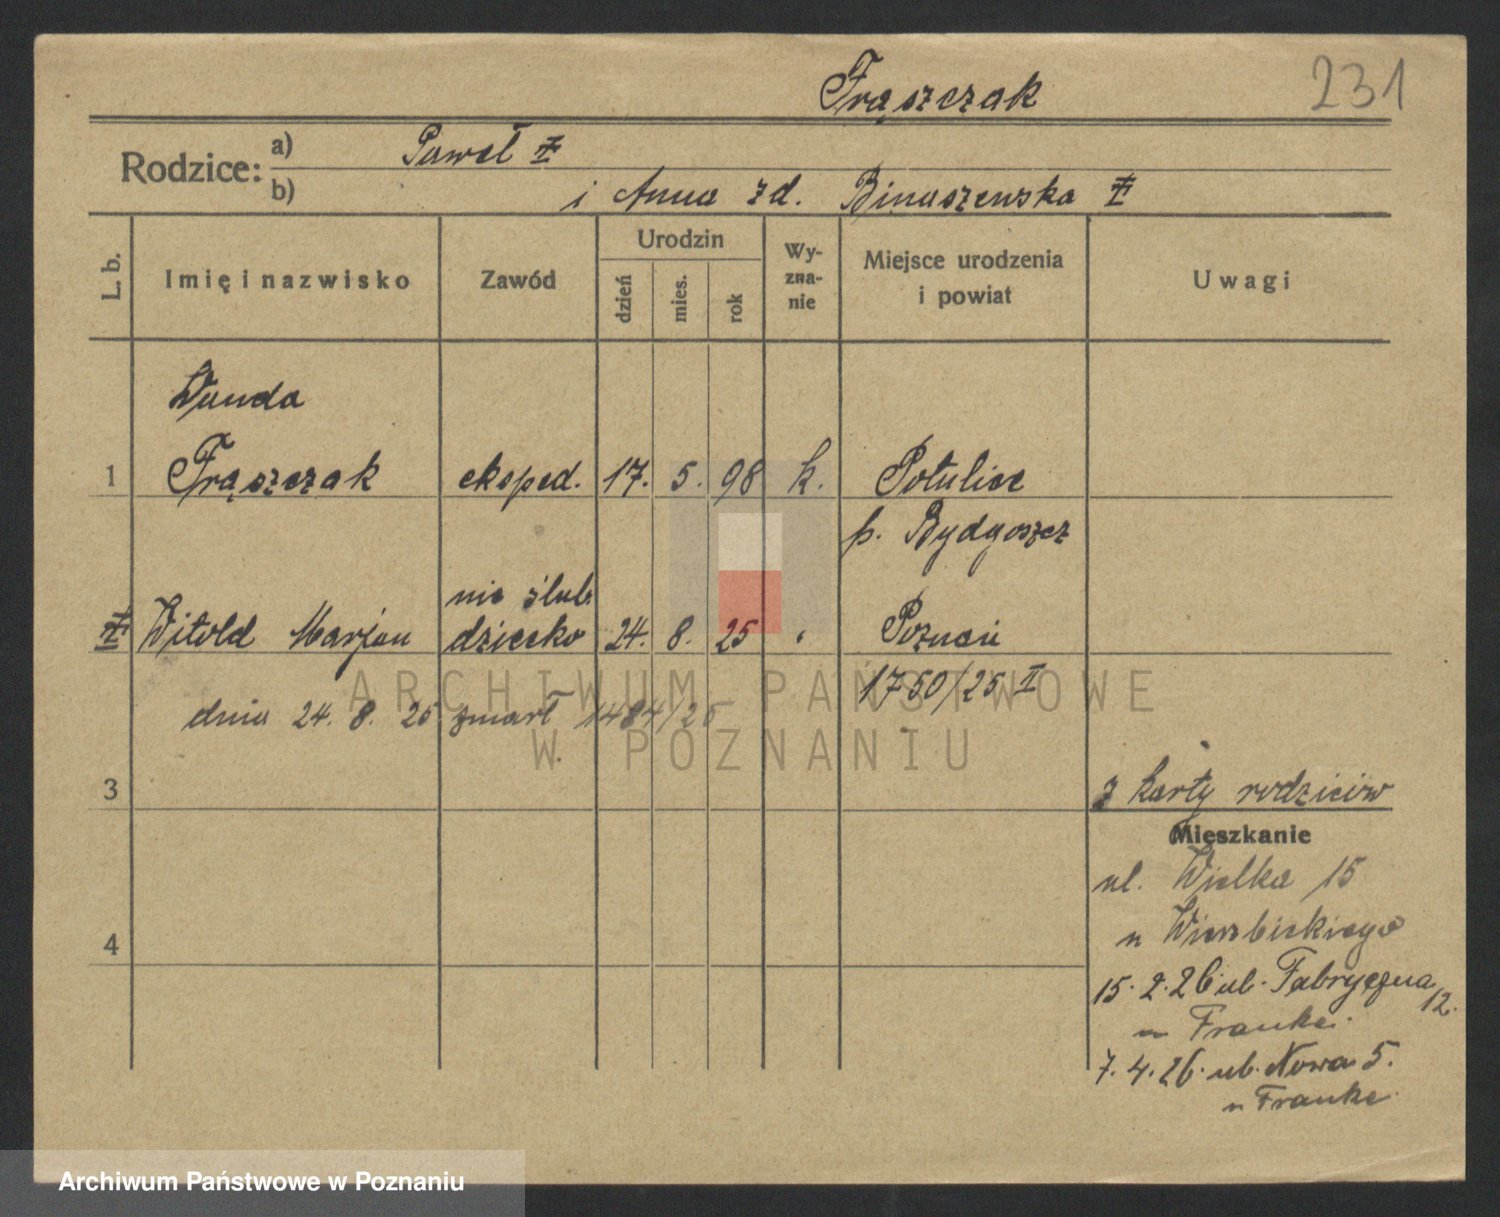 Frąszczak 231
Rodzice: a) Paweł ‡
b) i Anna zd. Binaszewska ‡
L. b. Imię i nazwisko Zawód Urodzin dzień mies. rok Wyznanie Miejsce urodzenia i powiat Uwagi
Wanda
1 Frąszczak eksped. 17. 5. 98 k. Potulice
p. Bydgoszcz
nie ślub.
‡ Witold Marjan dziecko 24. 8. 25 Poznań
1750/25 II
dnia 24. 8. 25 zmarł 1484/25
3 z karty rodziców
Mieszkanie
ul. Wielka 15
u Wierzbickiego
4
15. 2. 26 ul. Fabryczna 12.
u Franke.
7. 4. 26. ul. Nowa 5.
u Franke
ARCHIWUM PAŃSTWOWE
W POZNANIU
Archiwum Państwowe w Poznaniu